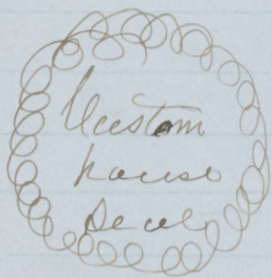 Custom
house
Seal